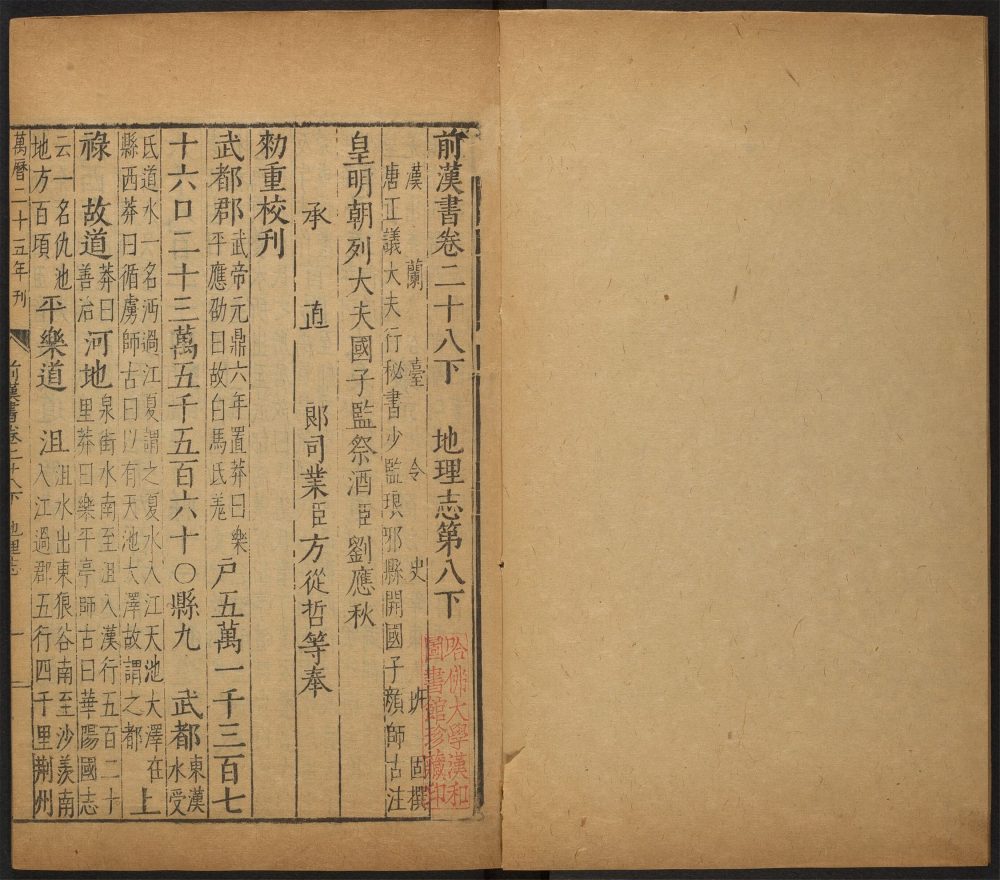 前漢書卷二十八下　地理志第八下
漢蘭臺令史班固撰
唐正議大夫行秘書少監琅邪縣開國子顏師古注
皇明朝列大夫國子監祭酒臣劉應秋
承直郎司業臣方從哲等奉
勑重校刊
武都郡武帝元鼎六年置莽曰樂平應劭曰故白馬氐羌戸五萬一千三百七
十六口二十三萬五千五百六十〇縣九　武都東漢水受
氐道水一名沔過江夏謂之夏水入江天池大澤在縣西莽曰循虜師古曰以有天池大澤故謂之都上
祿　故道莽曰善治河池泉街水南至沮入漢行五百二十里莽曰樂平亭師古曰華陽國志
云一名仇池地方百頃平樂道　沮沮水出東狼谷南至沙羨南入江過郡五行四千里荆州
萬曆二十五年刊
前漢書卷二十八下　地理志　一
哈佛大學漢和
圖書館珍藏印